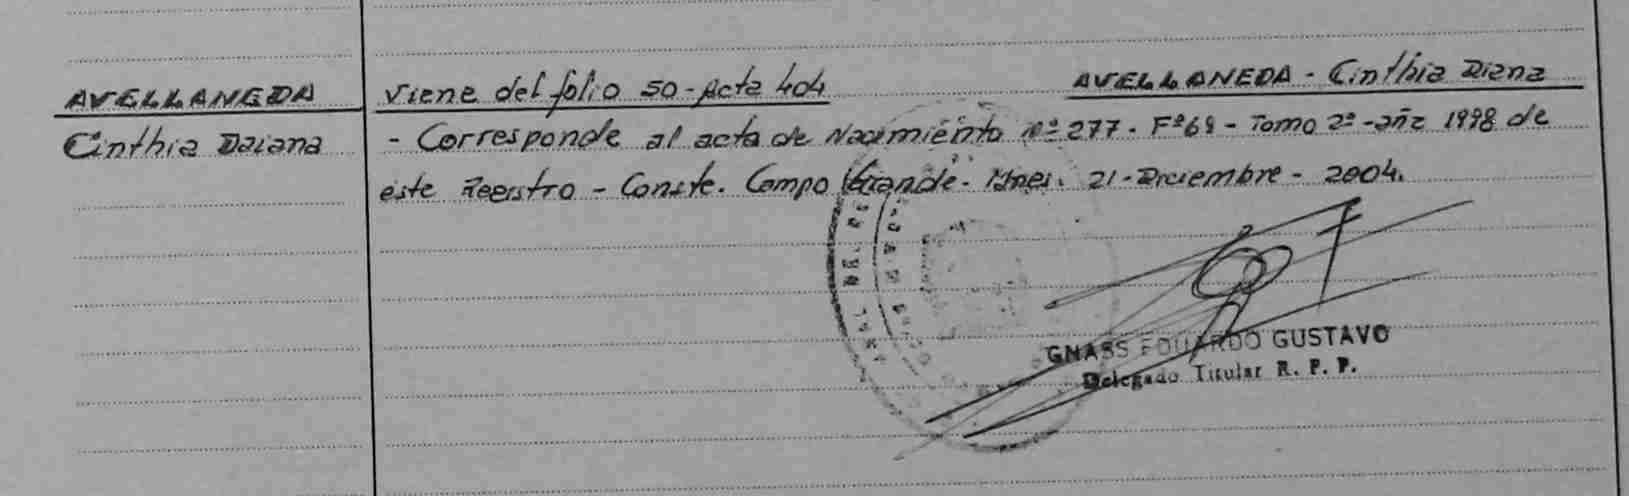 AVELLANEDA
Cinthia Daiana
viene del folio 50 - Acta 404
AVELLANEDA - Cinthia Diana
- Corresponde al acta de Nacimiento Nº 277 - Fº 69 - Tomo 2º - año 1998 de
este Registro - Conste. Campo Grande - Mnes. 21 - Diciembre - 2004.
GNASS EDUARDO GUSTAVO
Delegado Titular R. P. P.